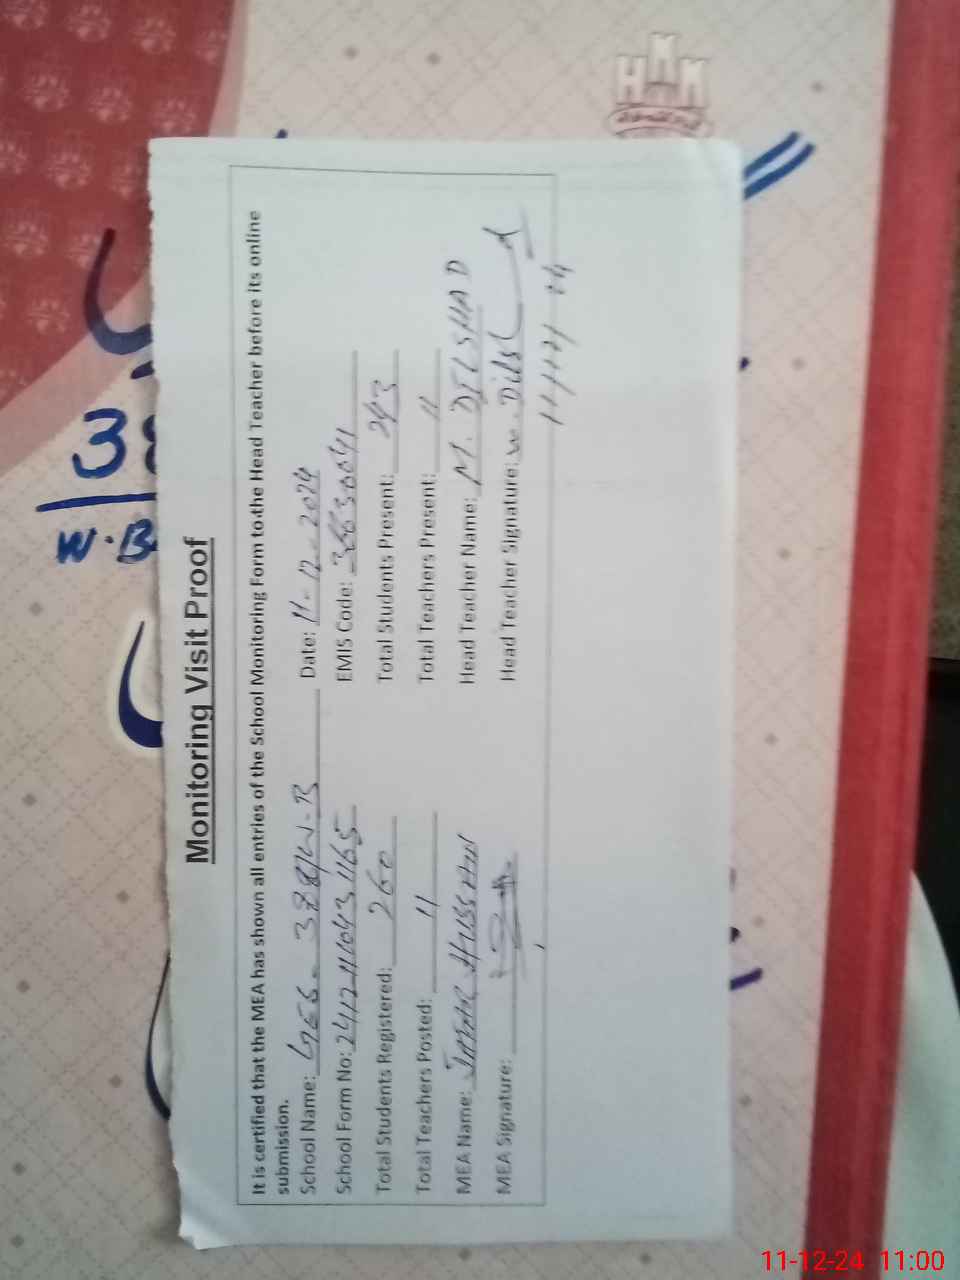 HMM
38
W.B
Monitoring Visit Proof
It is certified that the MEA has shown all entries of the School Monitoring Form to the Head Teacher before its online
submission.
School Name: GES - 388/W-B Date: 11-12-2024
School Form No: EMIS Code: 36630041
Total Students Registered: 260 Total Students Present: 243
Total Teachers Posted: 11 Total Teachers Present: 11
MEA Name: HUSSAIN Head Teacher Name: M. DILSHAD
MEA Signature: Head Teacher Signature:
11-12-24 11:00